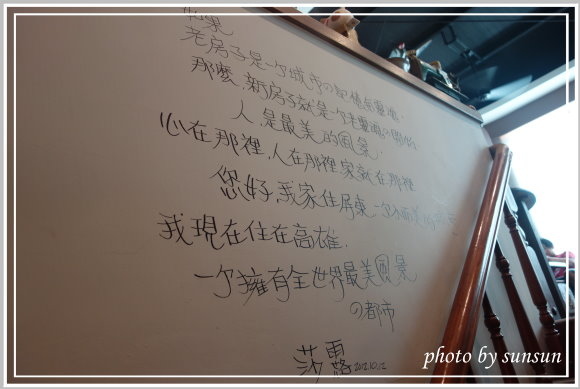 如果
老房子是一个城市の記憶與靈魂,
那麼,新房子就是一个老靈魂の開始.
人,是最美的風景.
心在那裡,人在那裡家就在那裡
您好,我家住屏東一个小而美的
我現在住在高雄,
一个擁有全世界最美風景
の都市
莎露 2012.10.12
photo by sunsun